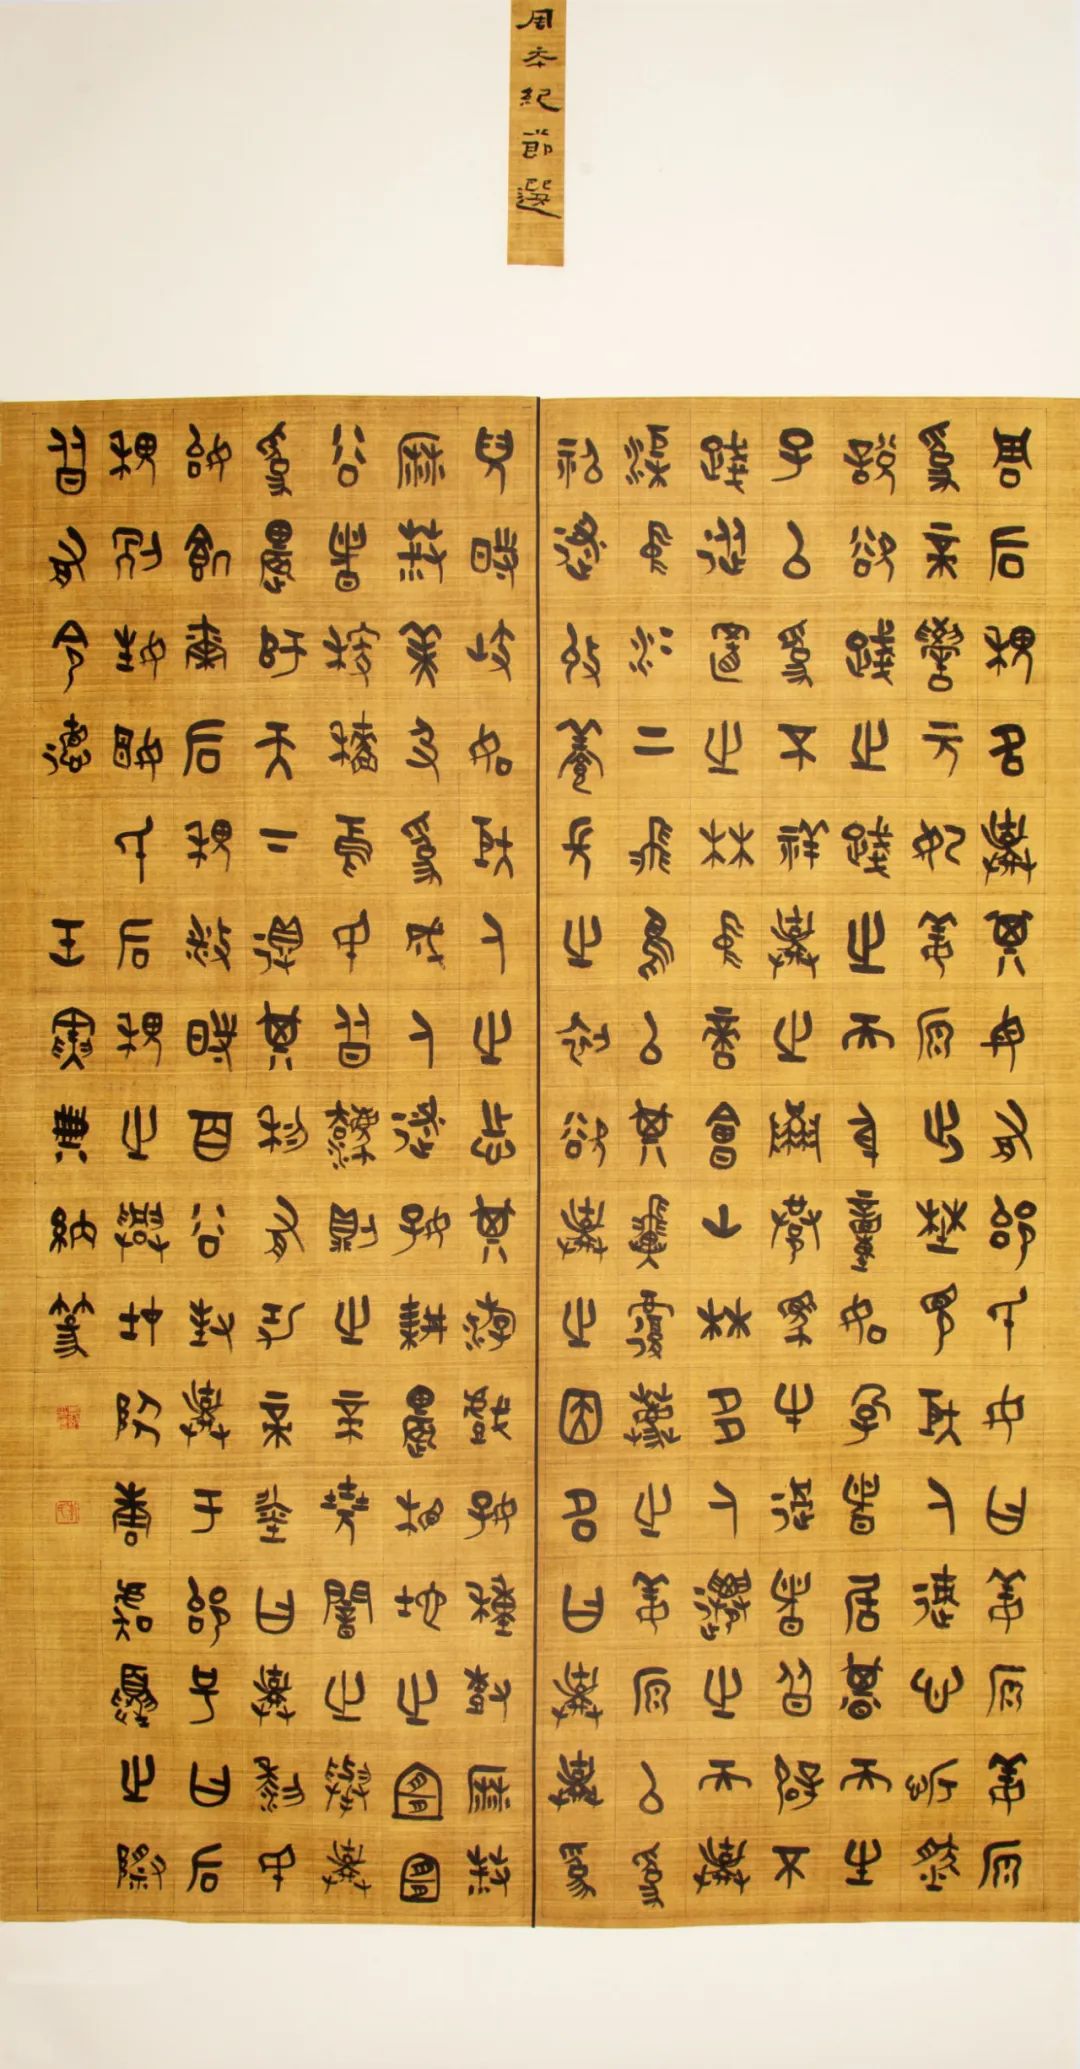 周本紀節選
周后稷名棄其母有邰氏女曰姜原姜原
為帝嚳元妃姜原出野見巨人跡心忻然
說欲踐之踐之而身動如孕者居期而生
子以為不祥棄之隘巷馬牛過者皆辟不
踐徙置之林中適會山林多人遷之而棄
渠中冰上飛鳥以其翼覆薦之姜原以為
神遂收養長之初欲棄之因名曰棄棄為
兒時屹如巨人之志其游戲好種樹麻菽
麻菽美及為成人遂好耕農相地之宜宜
穀者稼穡焉民皆法則之帝堯聞之舉棄
為農師天下得其利有功帝舜曰棄黎民
始飢爾后稷播時百穀封棄於邰號曰后
稷別姓姬氏后稷之興在陶唐虞夏之際
皆有令德 王寶典納篆